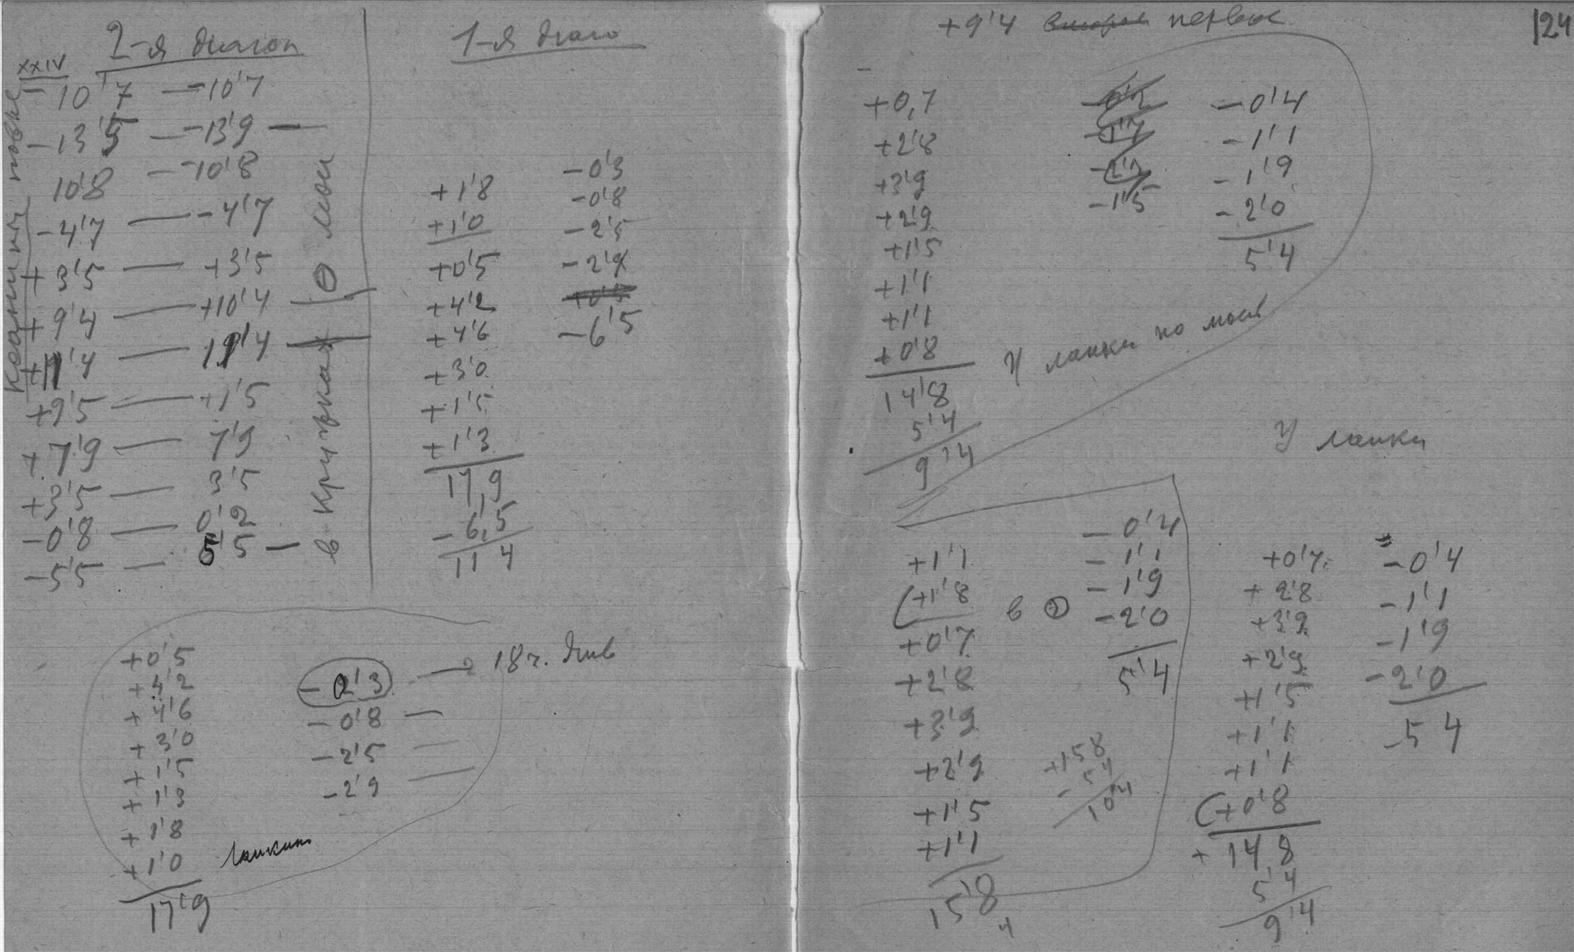 XXIV 2-я диагон
-10'7 — -10'7
-13'5 — -13'9 —
10'8 — -10'8
-4'7 — -4'7
+3'5 — +3'5
+9'4 — +10'4
+11'4 — 19'4
+9'5 — +1'5
+7'9 — 7'9
+3'5 — 3'5
-0'8 — 0'2
-5'5 — 5'5 —
в кружках О мои
1-я диаго
+1'8
+1'0
+0'5
+4'2
+4'6
+3'0
+1'5
+1'3
17,9
-6,5
11'4
-0'3
-0'8
-2'5
-2'9
-6'5
+0'5
+4'2
+4'6
+3'0
+1'5
+1'3
+1'8
+1'0
17'9
-0'3 — 18 ч.
-0'8 —
-2'5 —
-2'9 —
124
+9'4 вторая первое
+0,7
+2'8
+3'9
+2'9
+1'5
+1'1
+1'1
+0'8
14'8
5'4
9'4
-1'5
-0'4
-1'1
-1'9
-2'0
5'4
У ланки по моей
У ланки
+1'1
(+1'8 в
+0'7
+2'8
+3'9
+2'9
+1'5
+1'1
15'8
-0'4
-1'1
-1'9
-2'0
5'4
+158
-54
10'4
+0'7
+2'8
+3'9
+2'9
+1'5
+1'1
+1'1
(+0'8
+14,8
5'4
9'4
-0'4
-1'1
-1'9
-2'0
-54